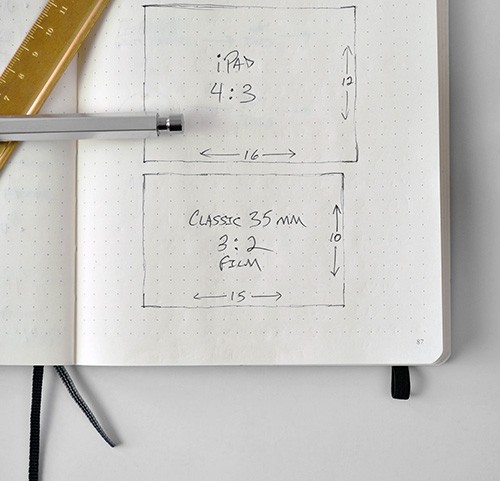 11
10
9
8
7
iPAD
4:3
12
16
CLASSIC 35 MM
3:2
FILM
10
15
87